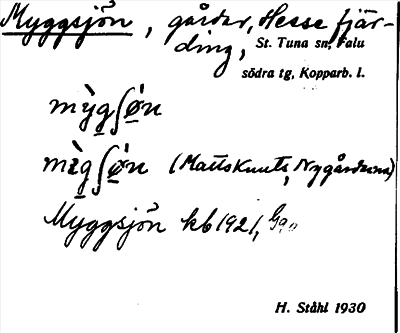 Myggsjön, gårdar, Hesse fjär-
ding, St. Tuna sn, Falu
södra tg, Kopparb. l.
mỳgʃǿn
mɪ̀gʃǿn (Mattsknuts, Nygårdarna)
Myggsjön kb 1921,
H. Ståhl 1930